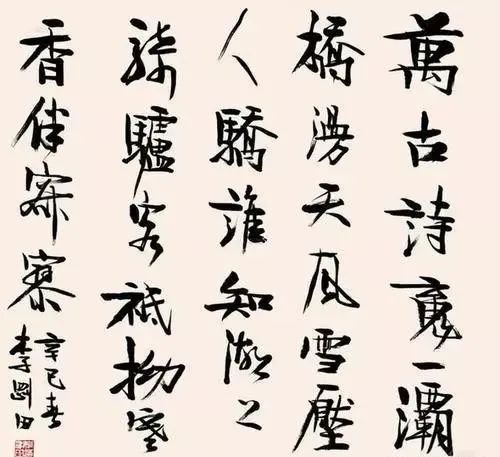 萬古詩一灞
橋漫天风雪壓
人驕誰知湖上
騎驢客祗拗寒
香伴寂寥
辛巳春
李剛田